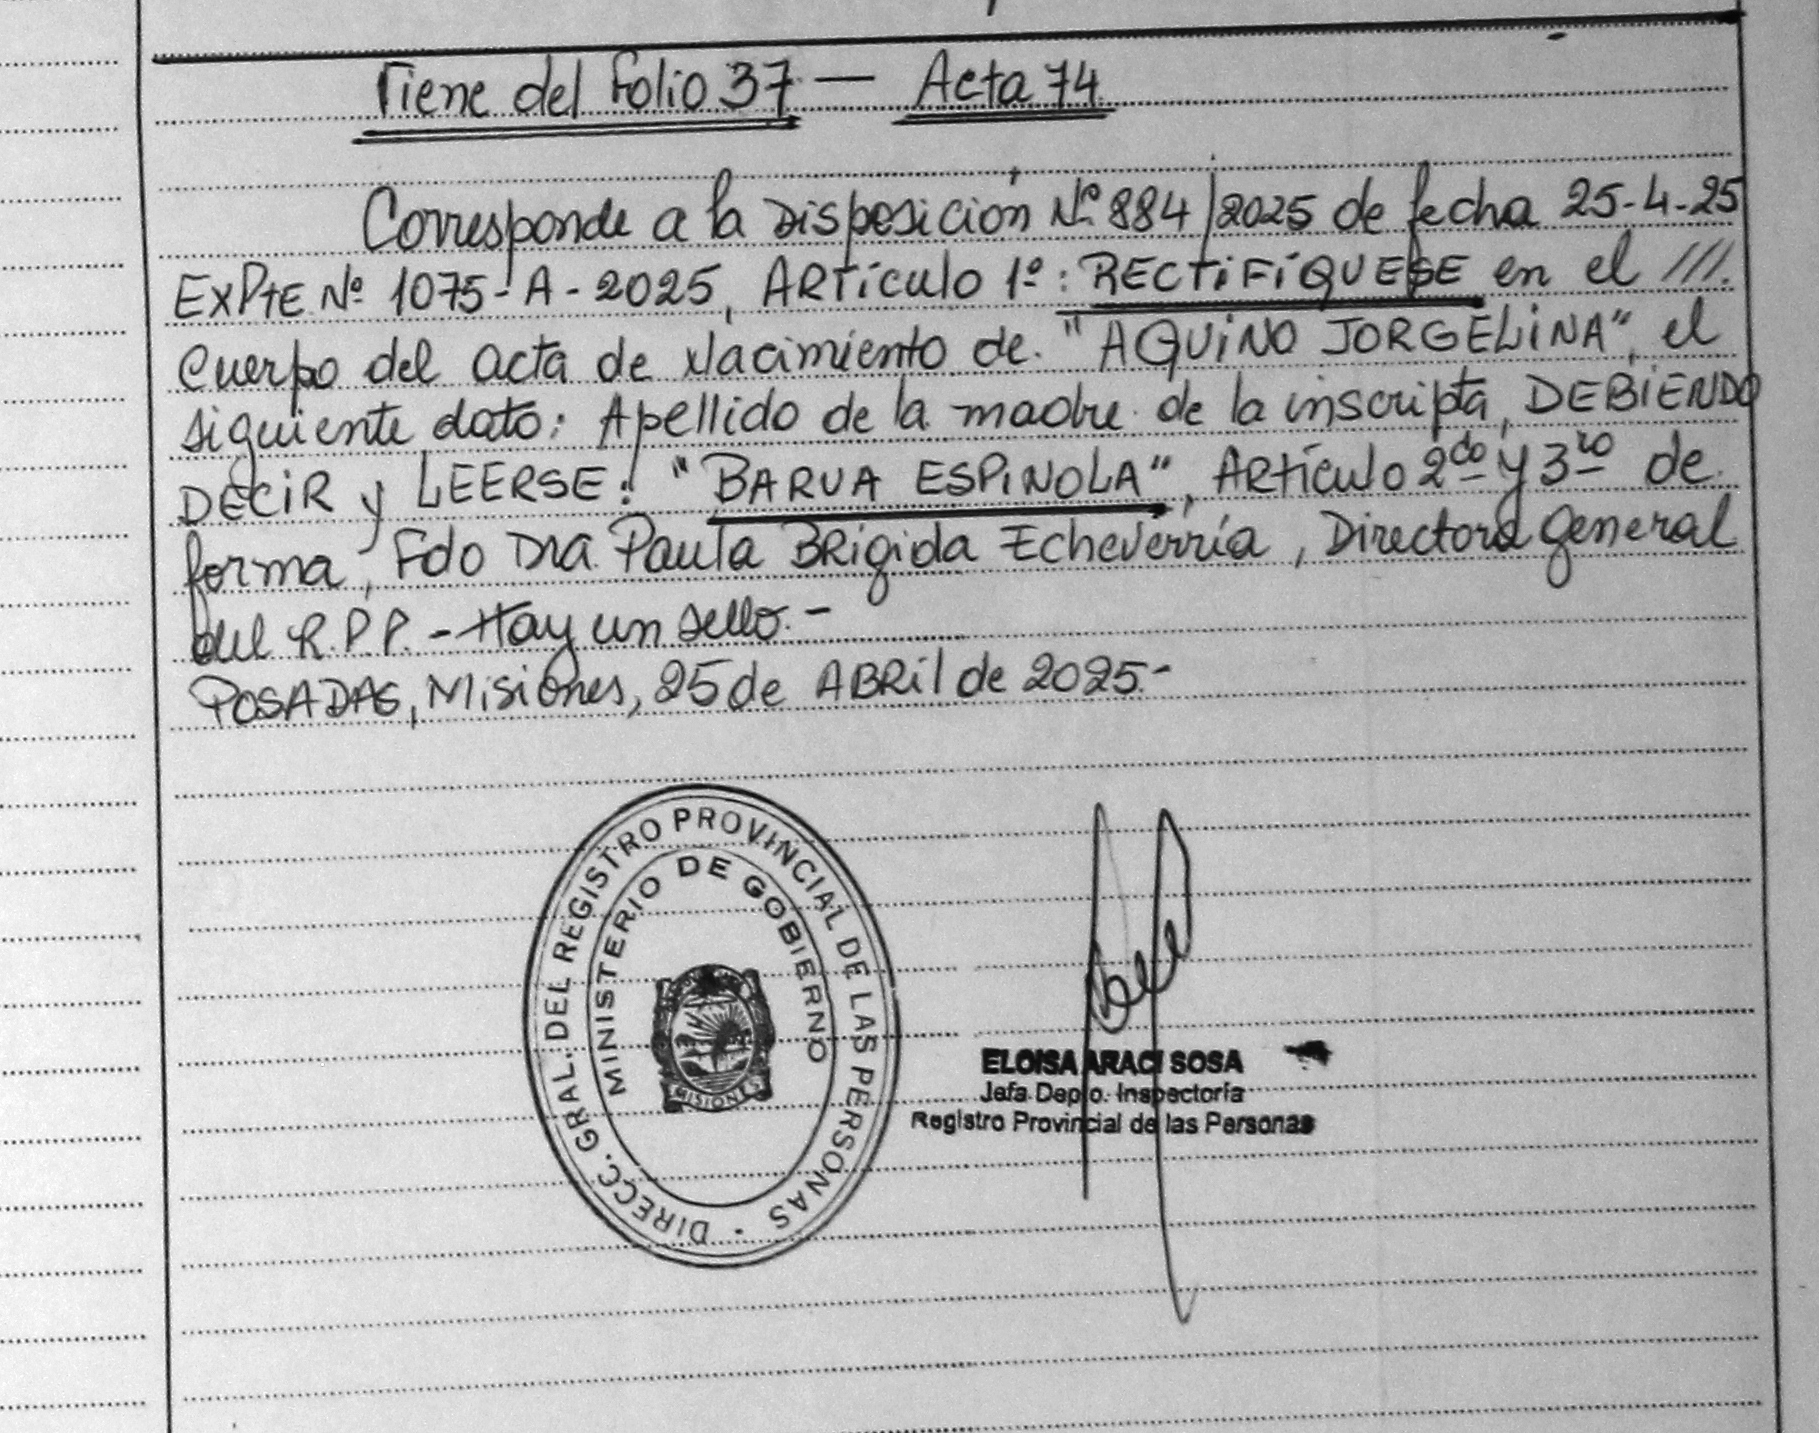 Viene del Folio 37 — Acta 74
Corresponde a la Disposición Nº 884/2025 de fecha 25-4-25
EXPTE Nº 1075-A-2025, ARTÍCULO 1º: RECTIFÍQUESE en el ///.
Cuerpo del acta de Nacimiento de. "AQUINO JORGELINA", el
siguiente dato: Apellido de la madre de la inscripta, DEBIENDO
DECIR y LEERSE: "BARUA ESPINOLA", ARTÍCULO 2do y 3ro de
forma, Fdo Dra Paula BRígida Echeverría, Directora general
del R.P.P. - Hay un sello. -
POSADAS, Misiones, 25 de ABRil de 2025.-
DIRECC. GRAL. DEL REGISTRO PROVINCIAL DE LAS PERSONAS
MINISTERIO DE GOBIERNO
MISIONES
ELOISA ARACI SOSA
Jefa Depto. Inspectoría
Registro Provincial de las Personas